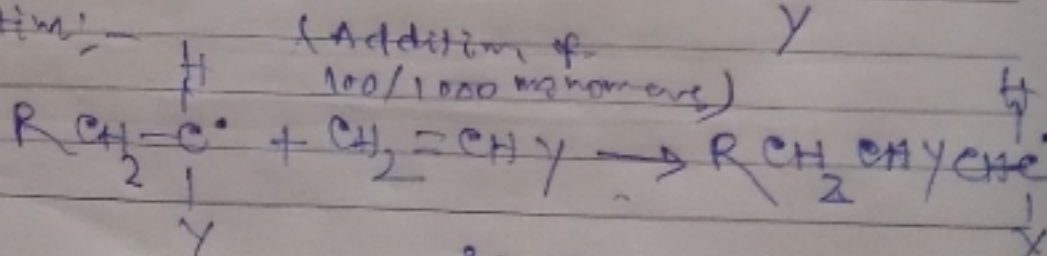 Y
tim:- (Addition of
100/1000 monomers)
H H
RCH2-C• + CH2=CHY → RCH2CHYCHC•
Y Y